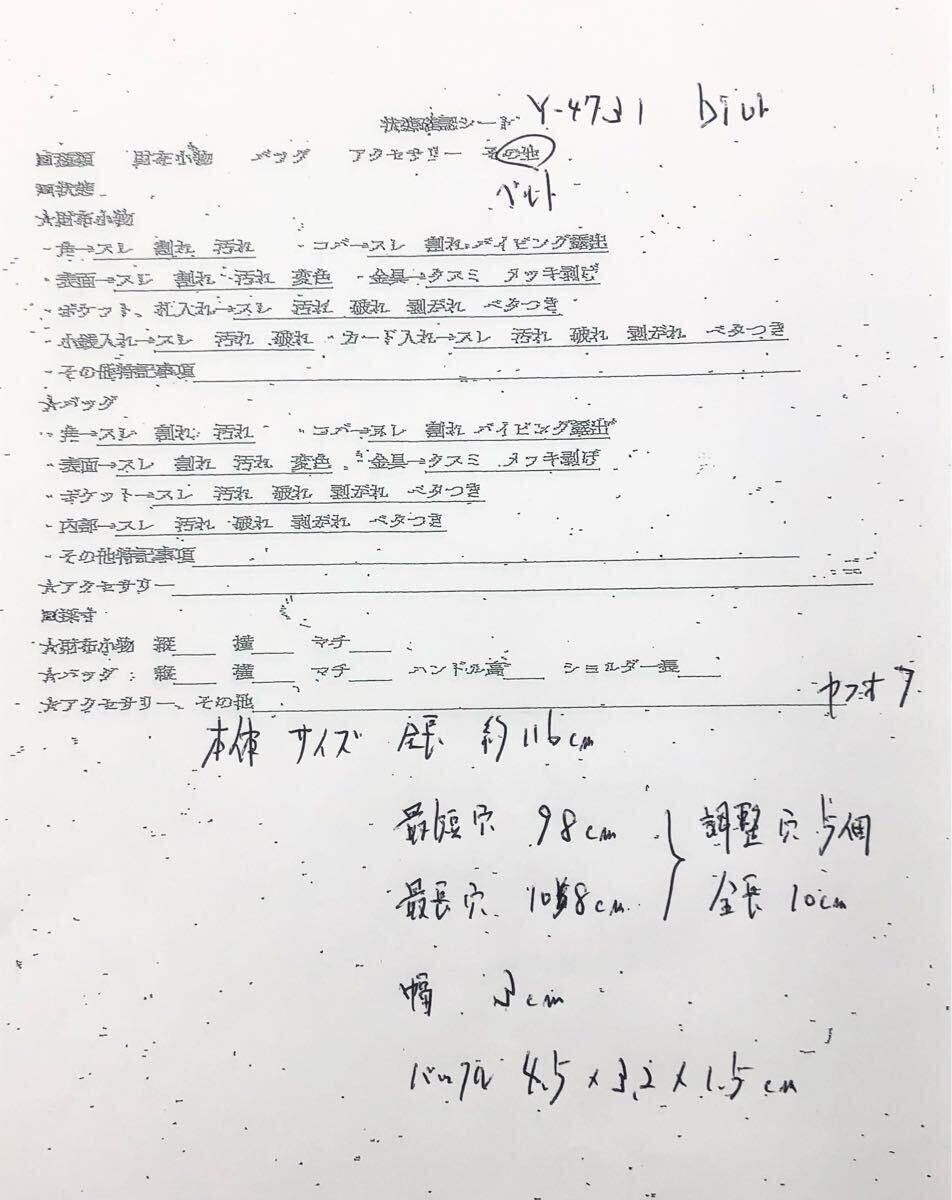 状態確認シード Y-4731
回種類 財布小物 バッグ アクセサリー その他
ベルト
回状態
☆財布小物
・角→スレ 割れ 汚れ ・コバ→スレ 割れ パイピング露出
・表面→スレ 割れ 汚れ 変色 ・金具→クスミ メッキ剥げ
・ポケット、札入れ→スレ 汚れ 破れ 剥がれ ベタつき
・小銭入れ→スレ 汚れ 破れ ・カード入れ→スレ 汚れ 破れ 剥がれ ベタつき
・その他特記事項
☆バッグ
・角→スレ 割れ 汚れ ・コバ→スレ 割れ パイピング露出
・表面→スレ 割れ 汚れ 変色 ・金具→クスミ メッキ剥げ
・ポケット→スレ 汚れ 破れ 剥がれ ベタつき
・内部→スレ 汚れ 破れ 剥がれ ベタつき
・その他特記事項
☆アクセサリー
回採寸
☆財布小物 縦 横 マチ
☆バッグ: 縦 横 マチ ハンドル高 ショルダー長
☆アクセサリー、その他 ヤフオフ
本体 サイズ 全長 約116cm
最短穴 98cm 調整穴 5個
最長穴 108cm 全長 10cm
幅 3cm
バックル 4.5×3.2×1.5cm